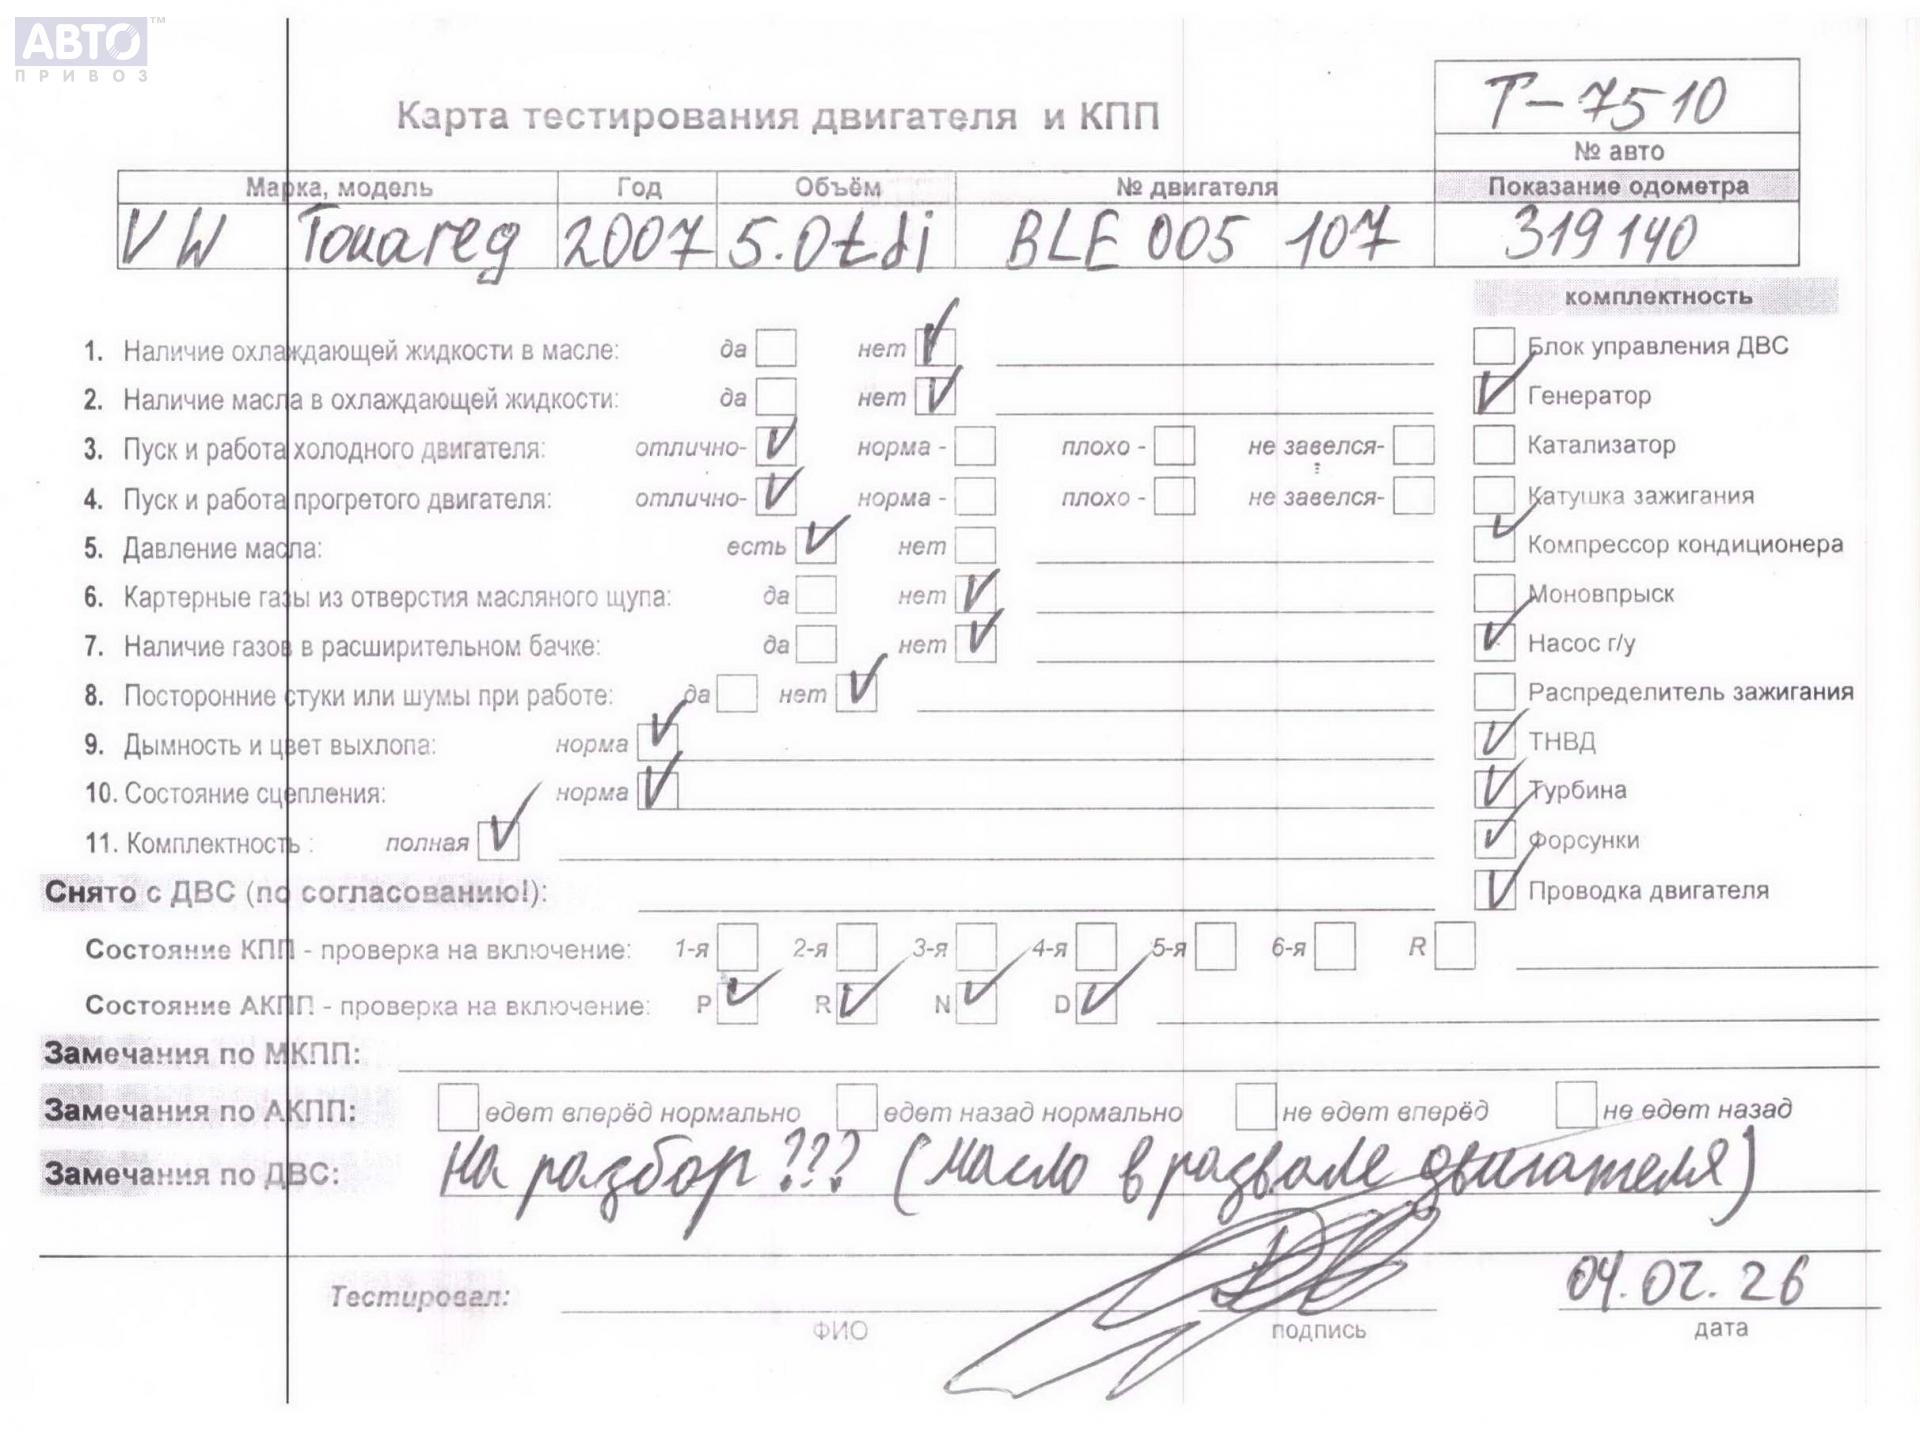 АВТО™
ПРИВОЗ
Карта тестирования двигателя и КПП
Т-7510
№ авто
Марка, модель Год Объём № двигателя Показание одометра
VW Touareg 2007 5.0tdi BLE 005 107 319140
комплектность
1. Наличие охлаждающей жидкости в масле: да нет ✓ Блок управления ДВС
2. Наличие масла в охлаждающей жидкости: да нет ✓ ✓ Генератор
3. Пуск и работа холодного двигателя: отлично- ✓ норма - плохо - не завелся- Катализатор
4. Пуск и работа прогретого двигателя: отлично- ✓ норма - плохо - не завелся- Катушка зажигания
5. Давление масла: есть ✓ нет ✓ Компрессор кондиционера
6. Картерные газы из отверстия масляного щупа: да нет ✓ Моновпрыск
7. Наличие газов в расширительном бачке: да нет ✓ ✓ Насос г/у
8. Посторонние стуки или шумы при работе: да нет ✓ Распределитель зажигания
9. Дымность и цвет выхлопа: норма ✓ ✓ ТНВД
10. Состояние сцепления: норма ✓ ✓ Турбина
11. Комплектность : полная ✓ ✓ Форсунки
Снято с ДВС (по согласованию!): ✓ Проводка двигателя
Состояние КПП - проверка на включение: 1-я 2-я 3-я 4-я 5-я 6-я R
Состояние АКПП - проверка на включение: P ✓ R ✓ N ✓ D ✓
Замечания по МКПП:
Замечания по АКПП: едет вперёд нормально едет назад нормально не едет вперёд не едет назад
Замечания по ДВС: На разбор??? (масло в развале двигателя)
Тестировал: 04.02.26
ФИО подпись дата